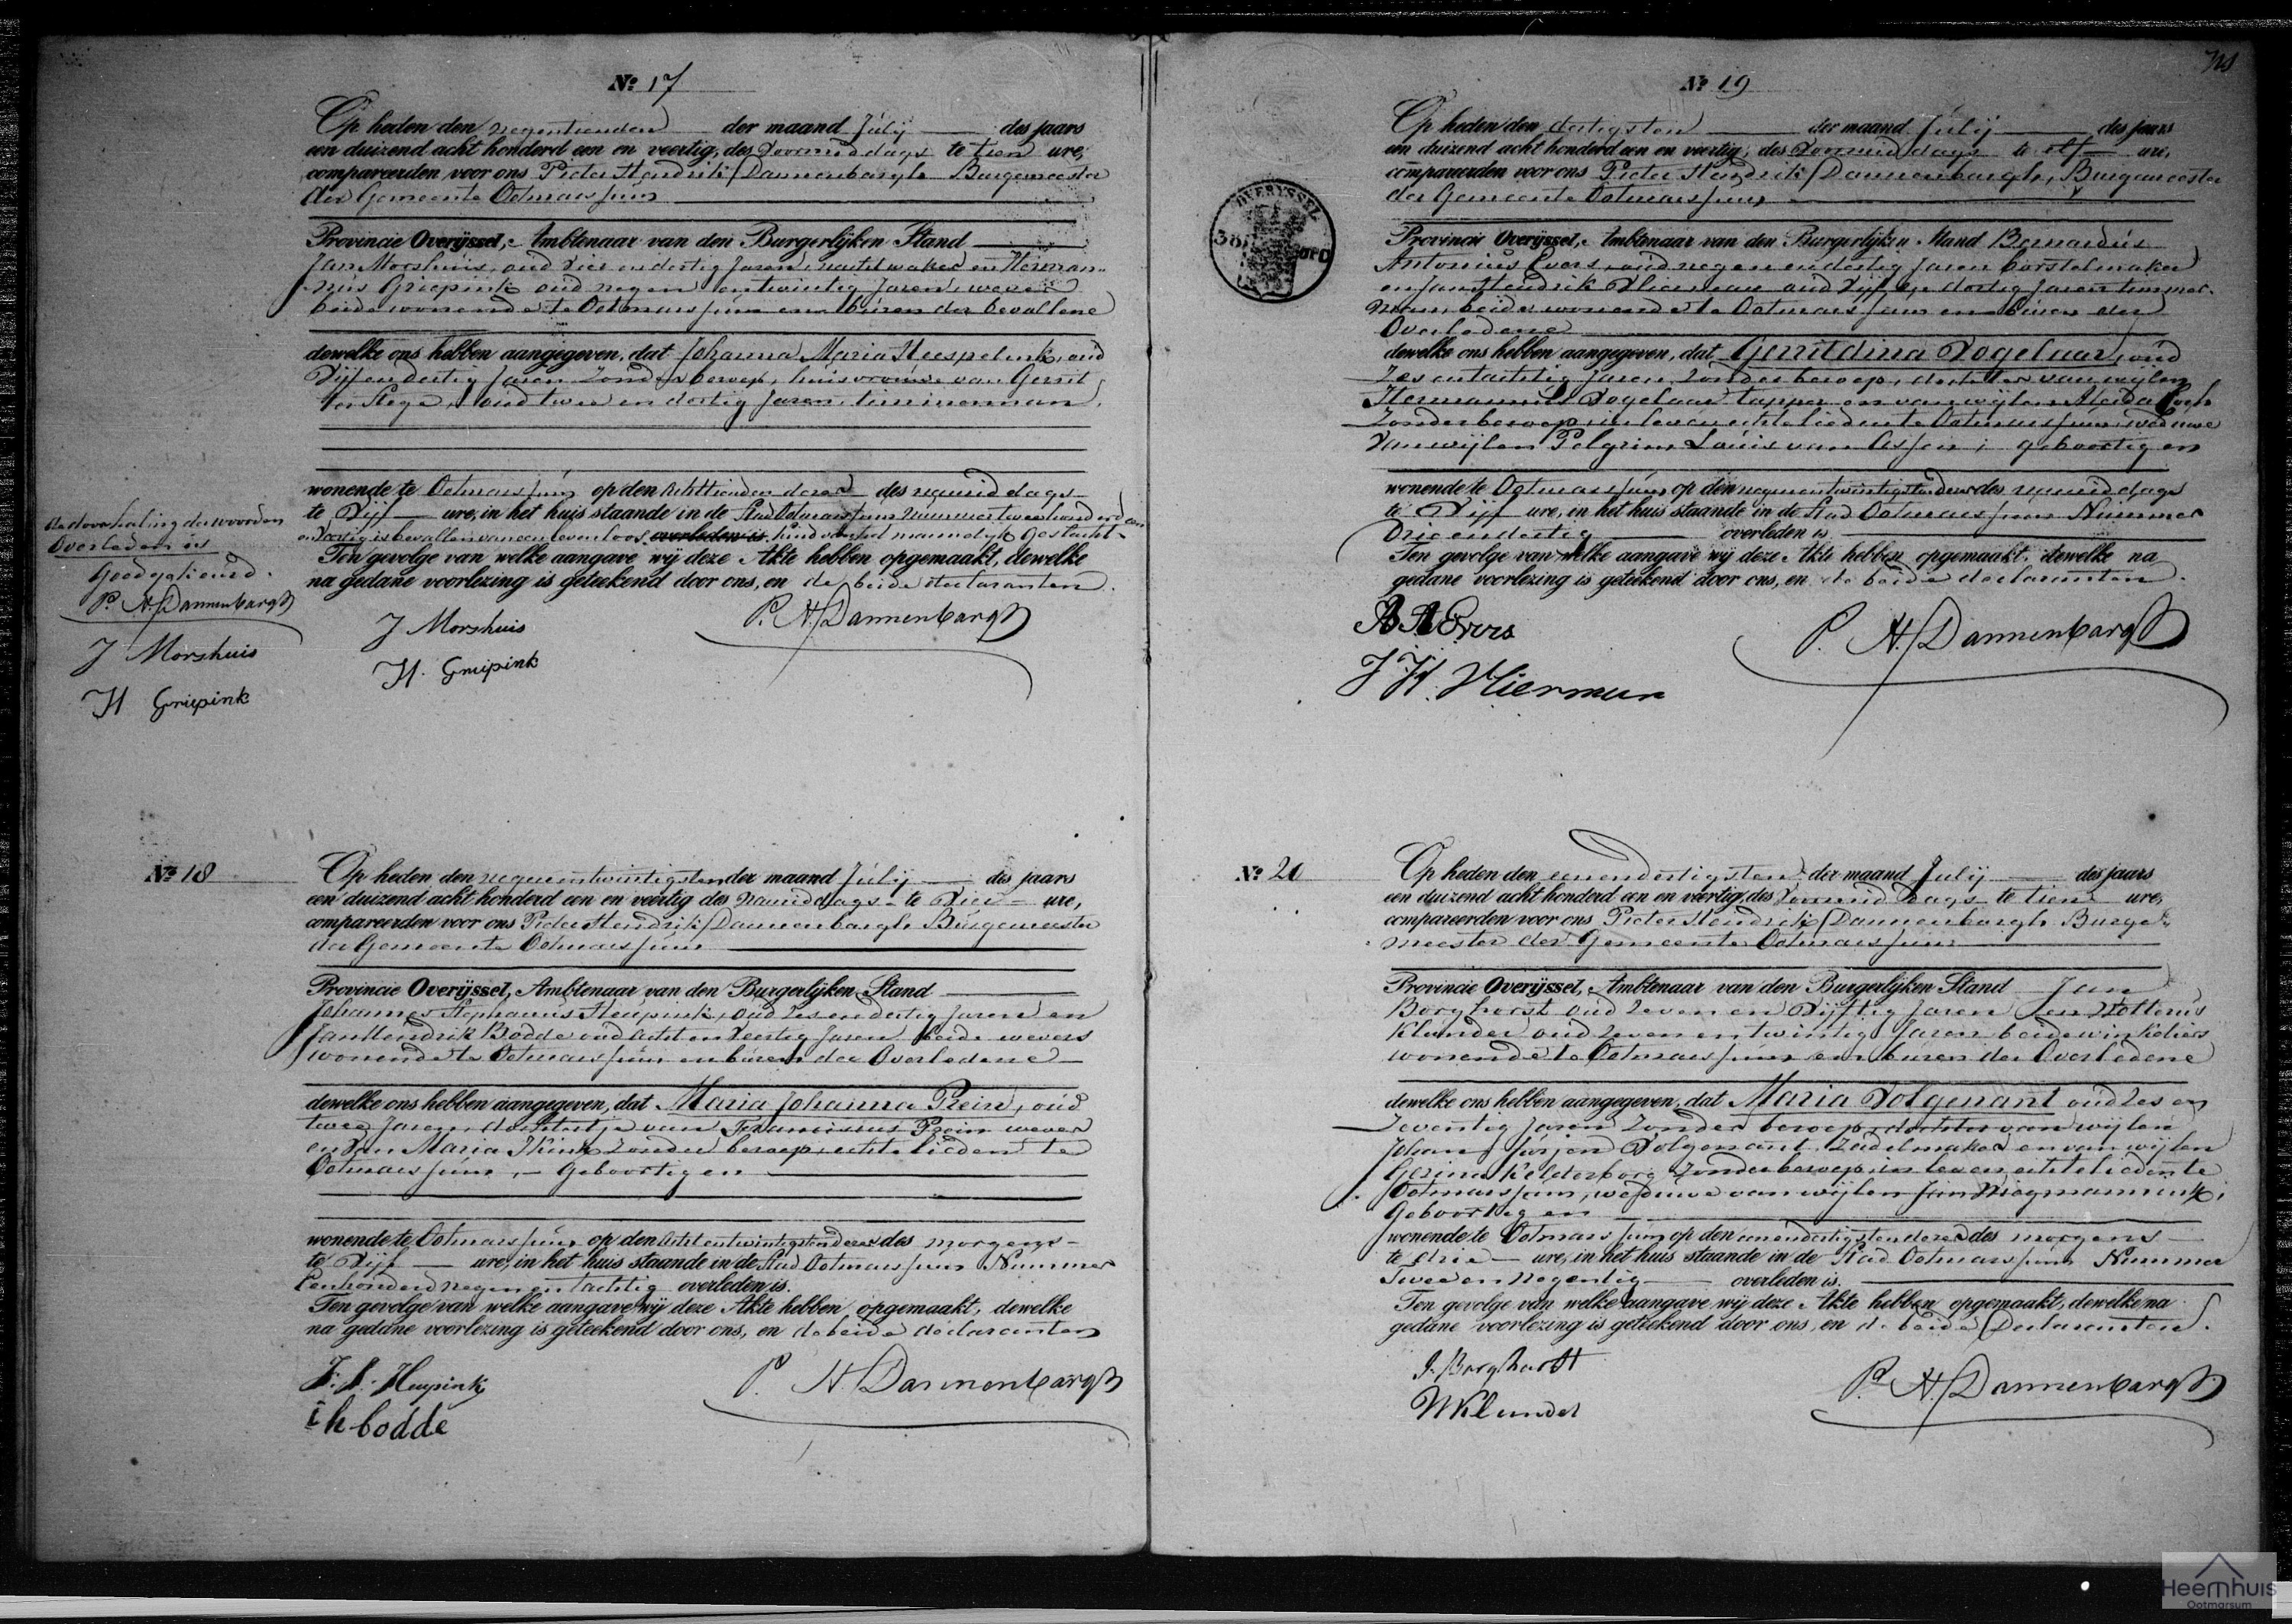 No 17
Op heden den negentienden der maand Julij des jaars
een duizend acht honderd een en veertig, des Voormiddags te tien ure,
compareerden voor ons Pieter Hendrik Dannenbargh Burgemeester
der Gemeente Ootmarssum
Provincie Overijssel, Ambtenaar van den Burgerlijken Stand
Jan Morshuis, oud vier en dertig Jaren, nachtwaker en Herman-
nus Griepink oud negen entwintig Jaren, wever
beide wonende te Ootmarssum en buren der bevallene
dewelke ons hebben aangegeven, dat Johanna Maria Heespelink, oud
Vijf en dertig Jaren Zonder beroep, huisvrouw van Gerrit
ter Stege, oud twee en dertig Jaren, timmerman,
wonende te Ootmarssum op den Achttienden dezer des namiddags
te Vijf ure, in het huis staande in de Stad Ootmarssum Nummer tweehonderd een
en dertig is bevallen van een levenloos overleden is. kind van het mannelijk Geslacht.
Ten gevolge van welke aangave wij deze Akte hebben opgemaakt, dewelke
na gedane voorlezing is geteekend door ons, en de beide declaranten.
J Morshuis
H. Griepink
P. H. Dannenbargh
de doorhaling der woorden
Overleden is
Goedgekeurd.
P. H. Dannenbargh
J Morshuis
H Griepink
No 18
Op heden den negenentwintigsten der maand Julij des jaars
een duizend acht honderd een en veertig des namiddags te Vier ure,
compareerden voor ons Pieter Hendrik Dannenbargh Burgemeester
der Gemeente Ootmarssum
Provincie Overijssel, Ambtenaar van den Burgerlijken Stand
Johannes Stephanus Heupink, oud Zes en dertig Jaren en
Jan Hendrik Bodde oud Acht en Veertig Jaren beide wevers
wonende te Ootmarssum en buren der Overledene
dewelke ons hebben aangegeven, dat Maria Johanna Prein, oud
twee Jaren, dochtertje van Franciscus Prein wever
en van Maria Kink zonder beroep, echtelieden te
Ootmarssum, Geboortig en
wonende te Ootmarssum op den Acht entwintigsten dezer des morgens
te Vijf ure, in het huis staande in de Stad Ootmarssum Nummer
Eenhonderd negen en tachtig overleden is.
Ten gevolge van welke aangave wij deze Akte hebben opgemaakt, dewelke
na gedane voorlezing is geteekend door ons, en de beide declaranten
J. S. Heupink
i h bodde
P. H. Dannenbargh
No 19
Op heden den dertigsten der maand Julij des jaars
een duizend acht honderd een en veertig, des Voormiddags te elf ure,
compareerden voor ons Pieter Hendrik Dannenbargh, Burgemeester
der Gemeente Ootmarssum
Provincie Overijssel, Ambtenaar van den Burgerlijken Stand Bernardus
Antonius Evers, oud negen en dertig Jaren borstelmaker
en Jan Hendrik Vlierman oud Vijf en dertig Jaren timmer-
man, beide wonende te Ootmarssum en buren der
Overledene
dewelke ons hebben aangegeven, dat Gerritdina Vogelaar, oud
Zes entachtig Jaren Zonder beroep, dochter van wijlen
Hermannus Vogelaar tapper en van wijlen Aleida
Zonder beroep, in leven echtelieden te Ootmarssum, weduwe
van wijlen Pelgrim Louis van Assen; geboortig en
wonende te Ootmarssum op den negenentwintigsten dezer des namiddags
te Vijf ure, in het huis staande in de Stad Ootmarssum Nummer
Drieendertig overleden is
Ten gevolge van welke aangave wij deze Akte hebben opgemaakt, dewelke na
gedane voorlezing is geteekend door ons, en de beide declaranten.
B A Evers
J H. Vlierman
P. H. Dannenbargh
OVERYSSEL
No 20
Op heden den eenendertigsten der maand Julij des jaars
een duizend acht honderd een en veertig, des Voormiddags te tien ure,
compareerden voor ons Pieter Hendrik Dannenbargh Burge-
meester der Gemeente Ootmarssum
Provincie Overijssel, Ambtenaar van den Burgerlijken Stand Jan
Borghorst oud Zeven en Vijftig Jaren en Wolterus
Klunder oud Zeven entwintig Jaren beide winkeliers
wonende te Ootmarssum en buren der Overledene
dewelke ons hebben aangegeven, dat Maria Volgenant oud Zes en
Zeventig Jaren Zonder beroep, dochter van wijlen
Johan Jurjen Volgenant Zadelmaker en van wijlen
Gesina Kelderborg Zonder beroep, in leven echtelieden te
Ootmarssum, weduwe van wijlen Jan Wiegmannink;
Geboortig en
wonende te Ootmarssum op den eenendertigsten dezer des morgens
te drie ure, in het huis staande in de Stad Ootmarssum Nummer
Twee en negentig overleden is.
Ten gevolge van welke aangave wij deze Akte hebben opgemaakt, dewelke na
gedane voorlezing is geteekend door ons, en de beide Declaranten.
J. Borghorst
W Klunder
P. H. Dannenbargh
Heemhuis
Ootmarsum